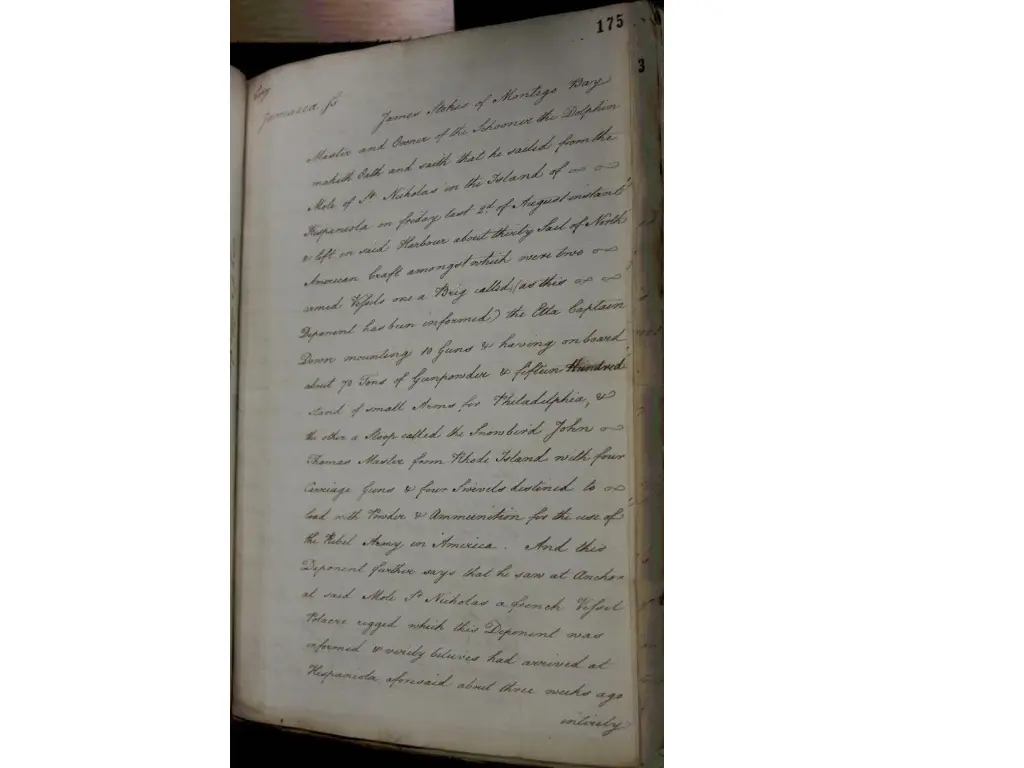 175
3
Copy
Jamaica ss
James Stokes of Montego Bay
Master and Owner of the Schooner the Dolphin
maketh Oath and saith that he sailed from the
Mole of St. Nicholas in the Island of
Hispaniola on friday last 2d. of August instant
& left in said Harbour about thirty Sail of North
American Craft amongst which were two
armed Vessels one a Brig called (as this
Deponent has been informed) the Etta Captain
Down mounting 10 Guns & having on board
about 70 Tons of Gunpowder & fifteen Hundred
stand of small Arms for Philadelphia, &
the other a Sloop called the Snowbird John
Thomas Master from Rhode Island with four
Carriage Guns & four Swivels destined to
load with Powder & Ammunition for the use of
the Rebel Army in America. And this
Deponent further says that he saw at Anchor
at said Mole St. Nicholas a french Vessel
Polacre rigged which this Deponent was
informed & verily believes had arrived at
Hispaniola aforesaid about three weeks ago
intirely